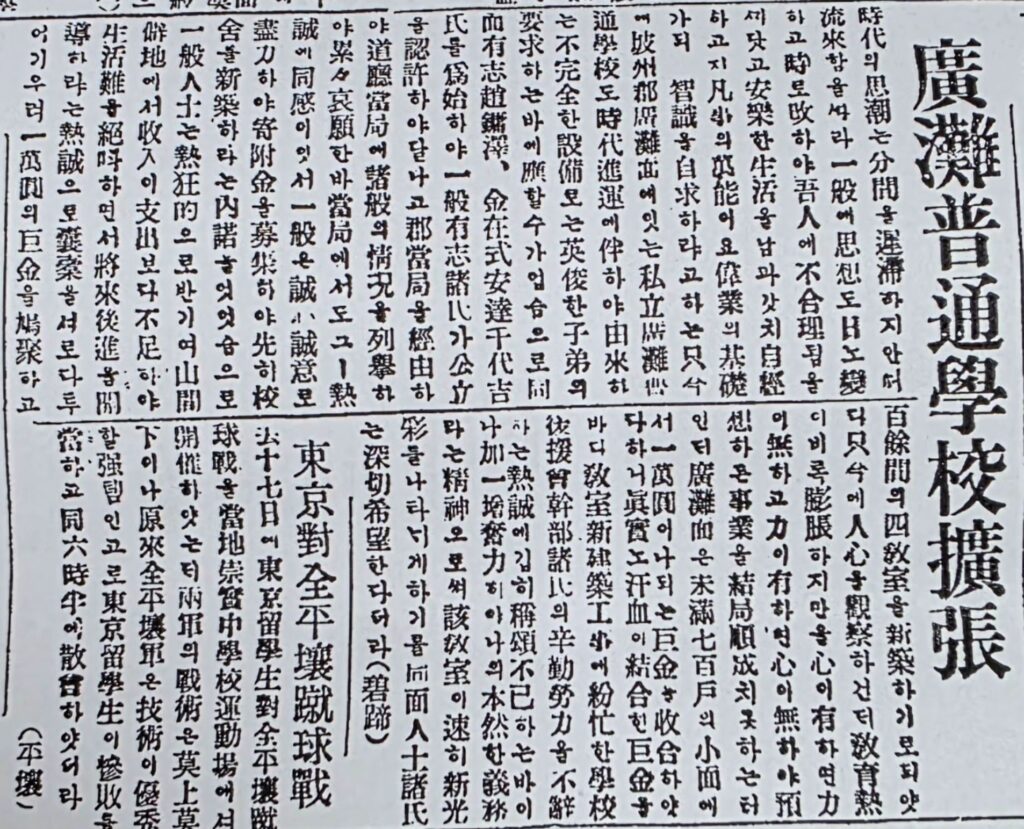 廣灘普通學校擴張
時代의思潮는分間을遲滯하지안터
流來함을따라一般에思想도日노變
하고時로改하야吾人에不合理됨을
깨닷고安樂한生活을남과갓치自經
하고지凡事의萬能이요偉業의基礎
가되 智識을自求하라고하는只今
에坡州郡廣灘面에잇는私立廣灘普
通學校도時代進運에伴하야由來하
는不完全한設備로는英俊한子弟의
要求하는바에應할수가업슴으로同
面有志趙鏞澤、金在式安達千代吉
氏를爲始하야一般有志諸氏가公立
을認許하야달나고郡當局을經由하
야道廳當局에諸般의情况을列擧하
야累々哀願한바當局에서도그ㅣ熱
誠에同感이잇서一般은誠心誠意로
盡力하야寄附金을募集하야先히校
舍를新築하라는內諾을엇엇슴으로
一般人士는熱狂的으로반기여山間
僻地에서收入이支出보다不足하야
生活難을絕叫하면서將來後進을開
導하라는熱誠으로囊槖을셔로다투
어기우려一萬圓의巨金을鳩聚하고
百餘間의四敎室을新築하기로되얏
다只今에人心을觀察하건대敎育熱
이비록膨脹하지만을心이有하면力
이無하고力이有하면心이無하야預
想하든事業을結局順成치못하는터
인데廣灘面은未滿七百戶의小面에
서一萬圓이나되는巨金을收合하얏
다하니眞實노汗血이結合된巨金을
바다敎室新建築工事에紛忙한學校
後援會幹部諸氏의辛勤勞力을不辭
하는熱誠에깁히稱頌不已하는바이
나加一增奮力하야나의本然한義務
라는精神으로써該敎室이速히新光
彩를나타너게하기를同面人士諸氏
는深切希望한다더라(碧蹄)
東京對全平壤蹴球戰
去十七日에東京留學生對全平壤蹴
球戰을當地崇實中學校運動場에서
開催하얏는데兩軍의戰術은莫上莫
下이나原來全平壤軍은技術이優秀
할强팀인고로東京留學生이慘敗을
當하고同六時半에散會하얏더라
(平壤)